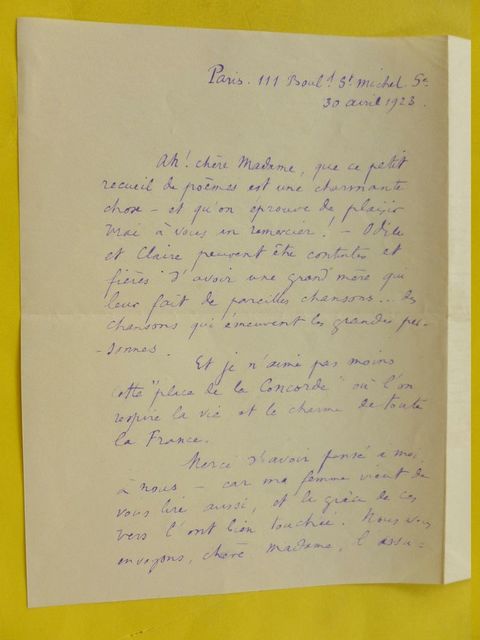 Paris. 111 Boul.d St Michel. 5e
30 avril 1923.
Ah! chère Madame, que ce petit
recueil de poèmes est une charmante
chose – et qu'on éprouve de plaisir
vrai à vous en remercier! – Odile
et Claire peuvent être contentes et
fières d'avoir une grand'mère qui
leur fait de pareilles chansons... des
chansons qui émeuvent les grandes per-
-sonnes.
Et je n'aime pas moins
cette "place de la Concorde" où l'on
respire la vie et le charme de toute
la France.
Merci d'avoir pensé à moi
à nous – car ma femme vient de
vous lire aussi, et la grâce de ces
vers l'ont bien touchée. Nous vous
envoyons, chère Madame, l'assu-